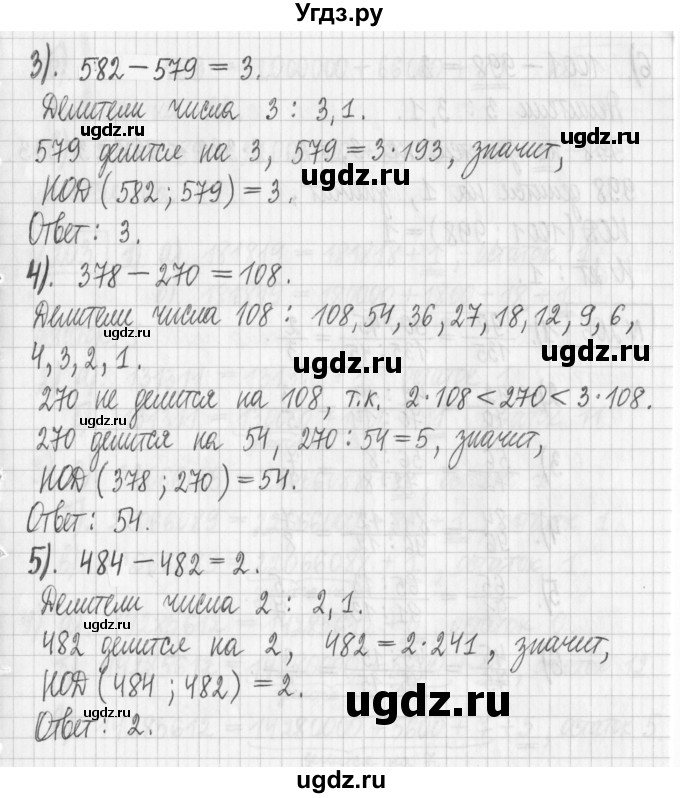 Угдз.ру
3). 582 − 579 = 3.
Делители числа 3 : 3, 1.
ugdz.ru
ugdz.ru
579 делится на 3, 579 = 3·193, значит,
ugdz.ru
НОД (582 ; 579) = 3.
Ответ: 3.
4). 378 − 270 = 108.
Делители числа 108 : 108, 54, 36, 27, 18, 12, 9, 6,
ugdz.ru
4, 3, 2, 1.
ugdz.ru
270 не делится на 108, т.к. 2·108 < 270 < 3·108.
ugdz.ru
270 делится на 54, 270 : 54 = 5, значит,
ugdz.ru
НОД (378 ; 270) = 54.
Ответ: 54.
ugdz.ru
5). 484 − 482 = 2.
Делители числа 2 : 2, 1.
ugdz.ru
482 делится на 2, 482 = 2·241, значит,
НОД (484 ; 482) = 2.
ugdz.ru
ugdz.ru
Ответ: 2.
ugdz.ru